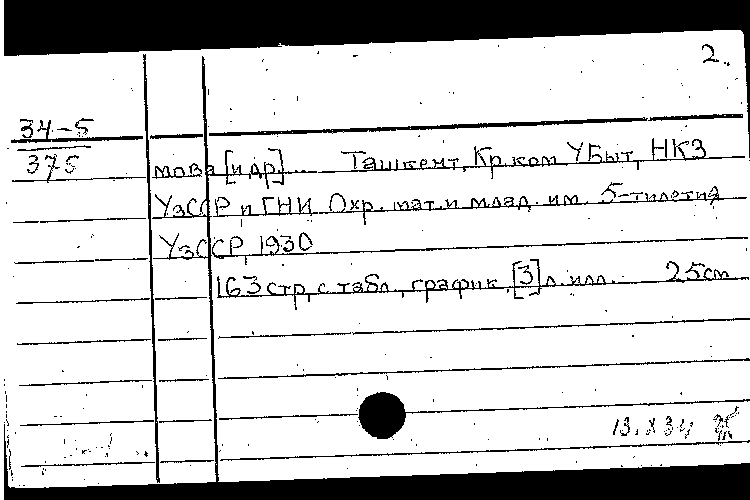 2.
34-5
375
мова [и др]... Ташкент, Кр. ком УБыт, НКЗ
УзССР и ГНИ Охр. мат. и млад. им. 5-тилетия
УзССР, 1930
163 стр, с табл., график, [3] л. илл. 25см
13.X 34